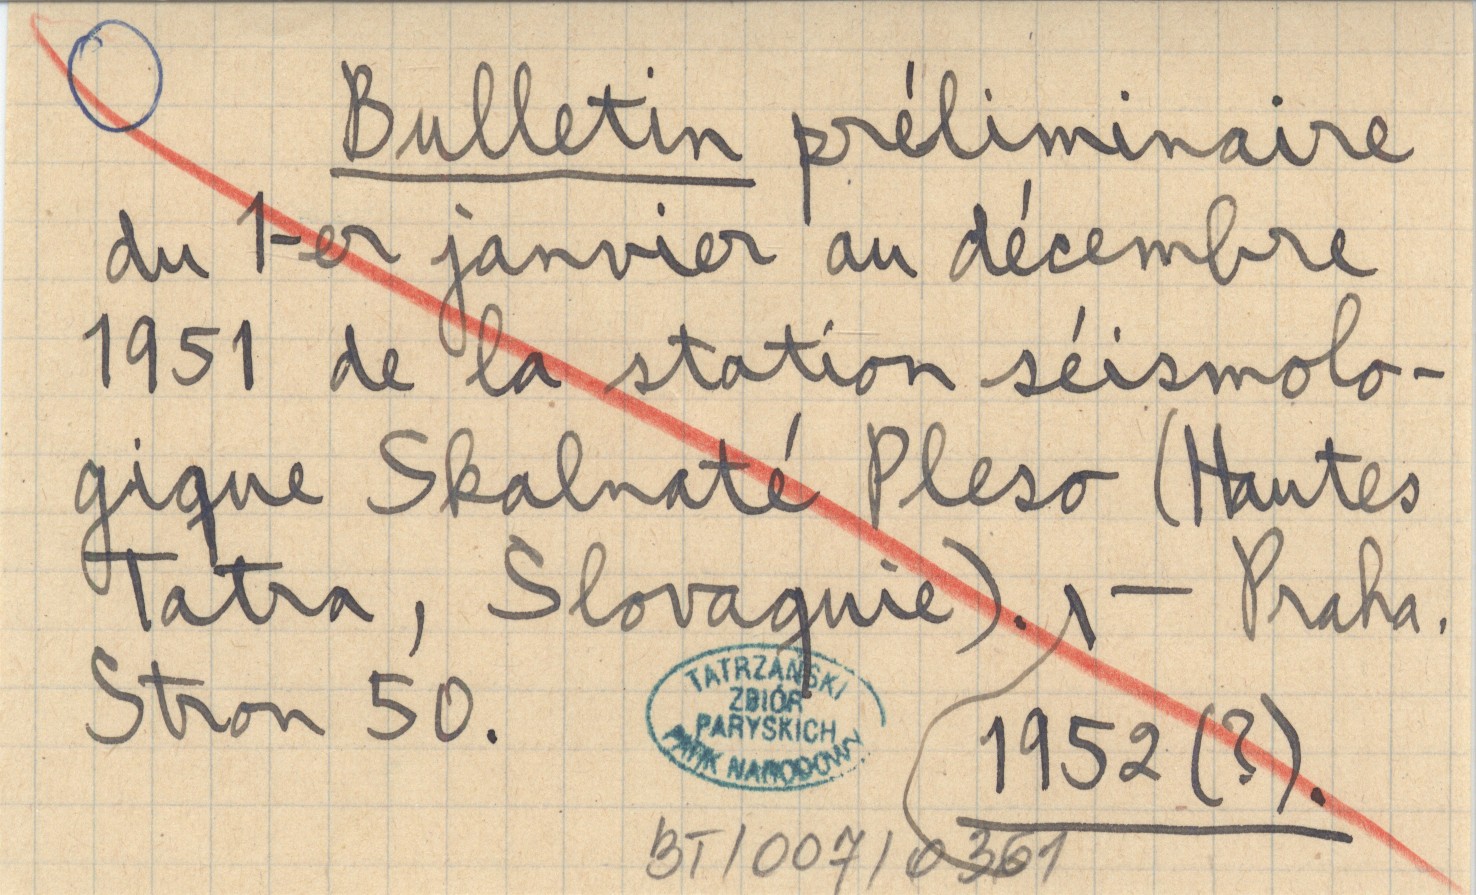 Bulletin préliminaire
du 1-er janvier au décembre
1951 de la station séismolo-
gique Skalnaté Pleso (Hautes
Tatra, Slovaquie). — Praha.
Stron 50.
1952 (?).
TATRZAŃSKI
ZBIÓR
PARYSKICH
PARK NARODOWY
BT/007/0361